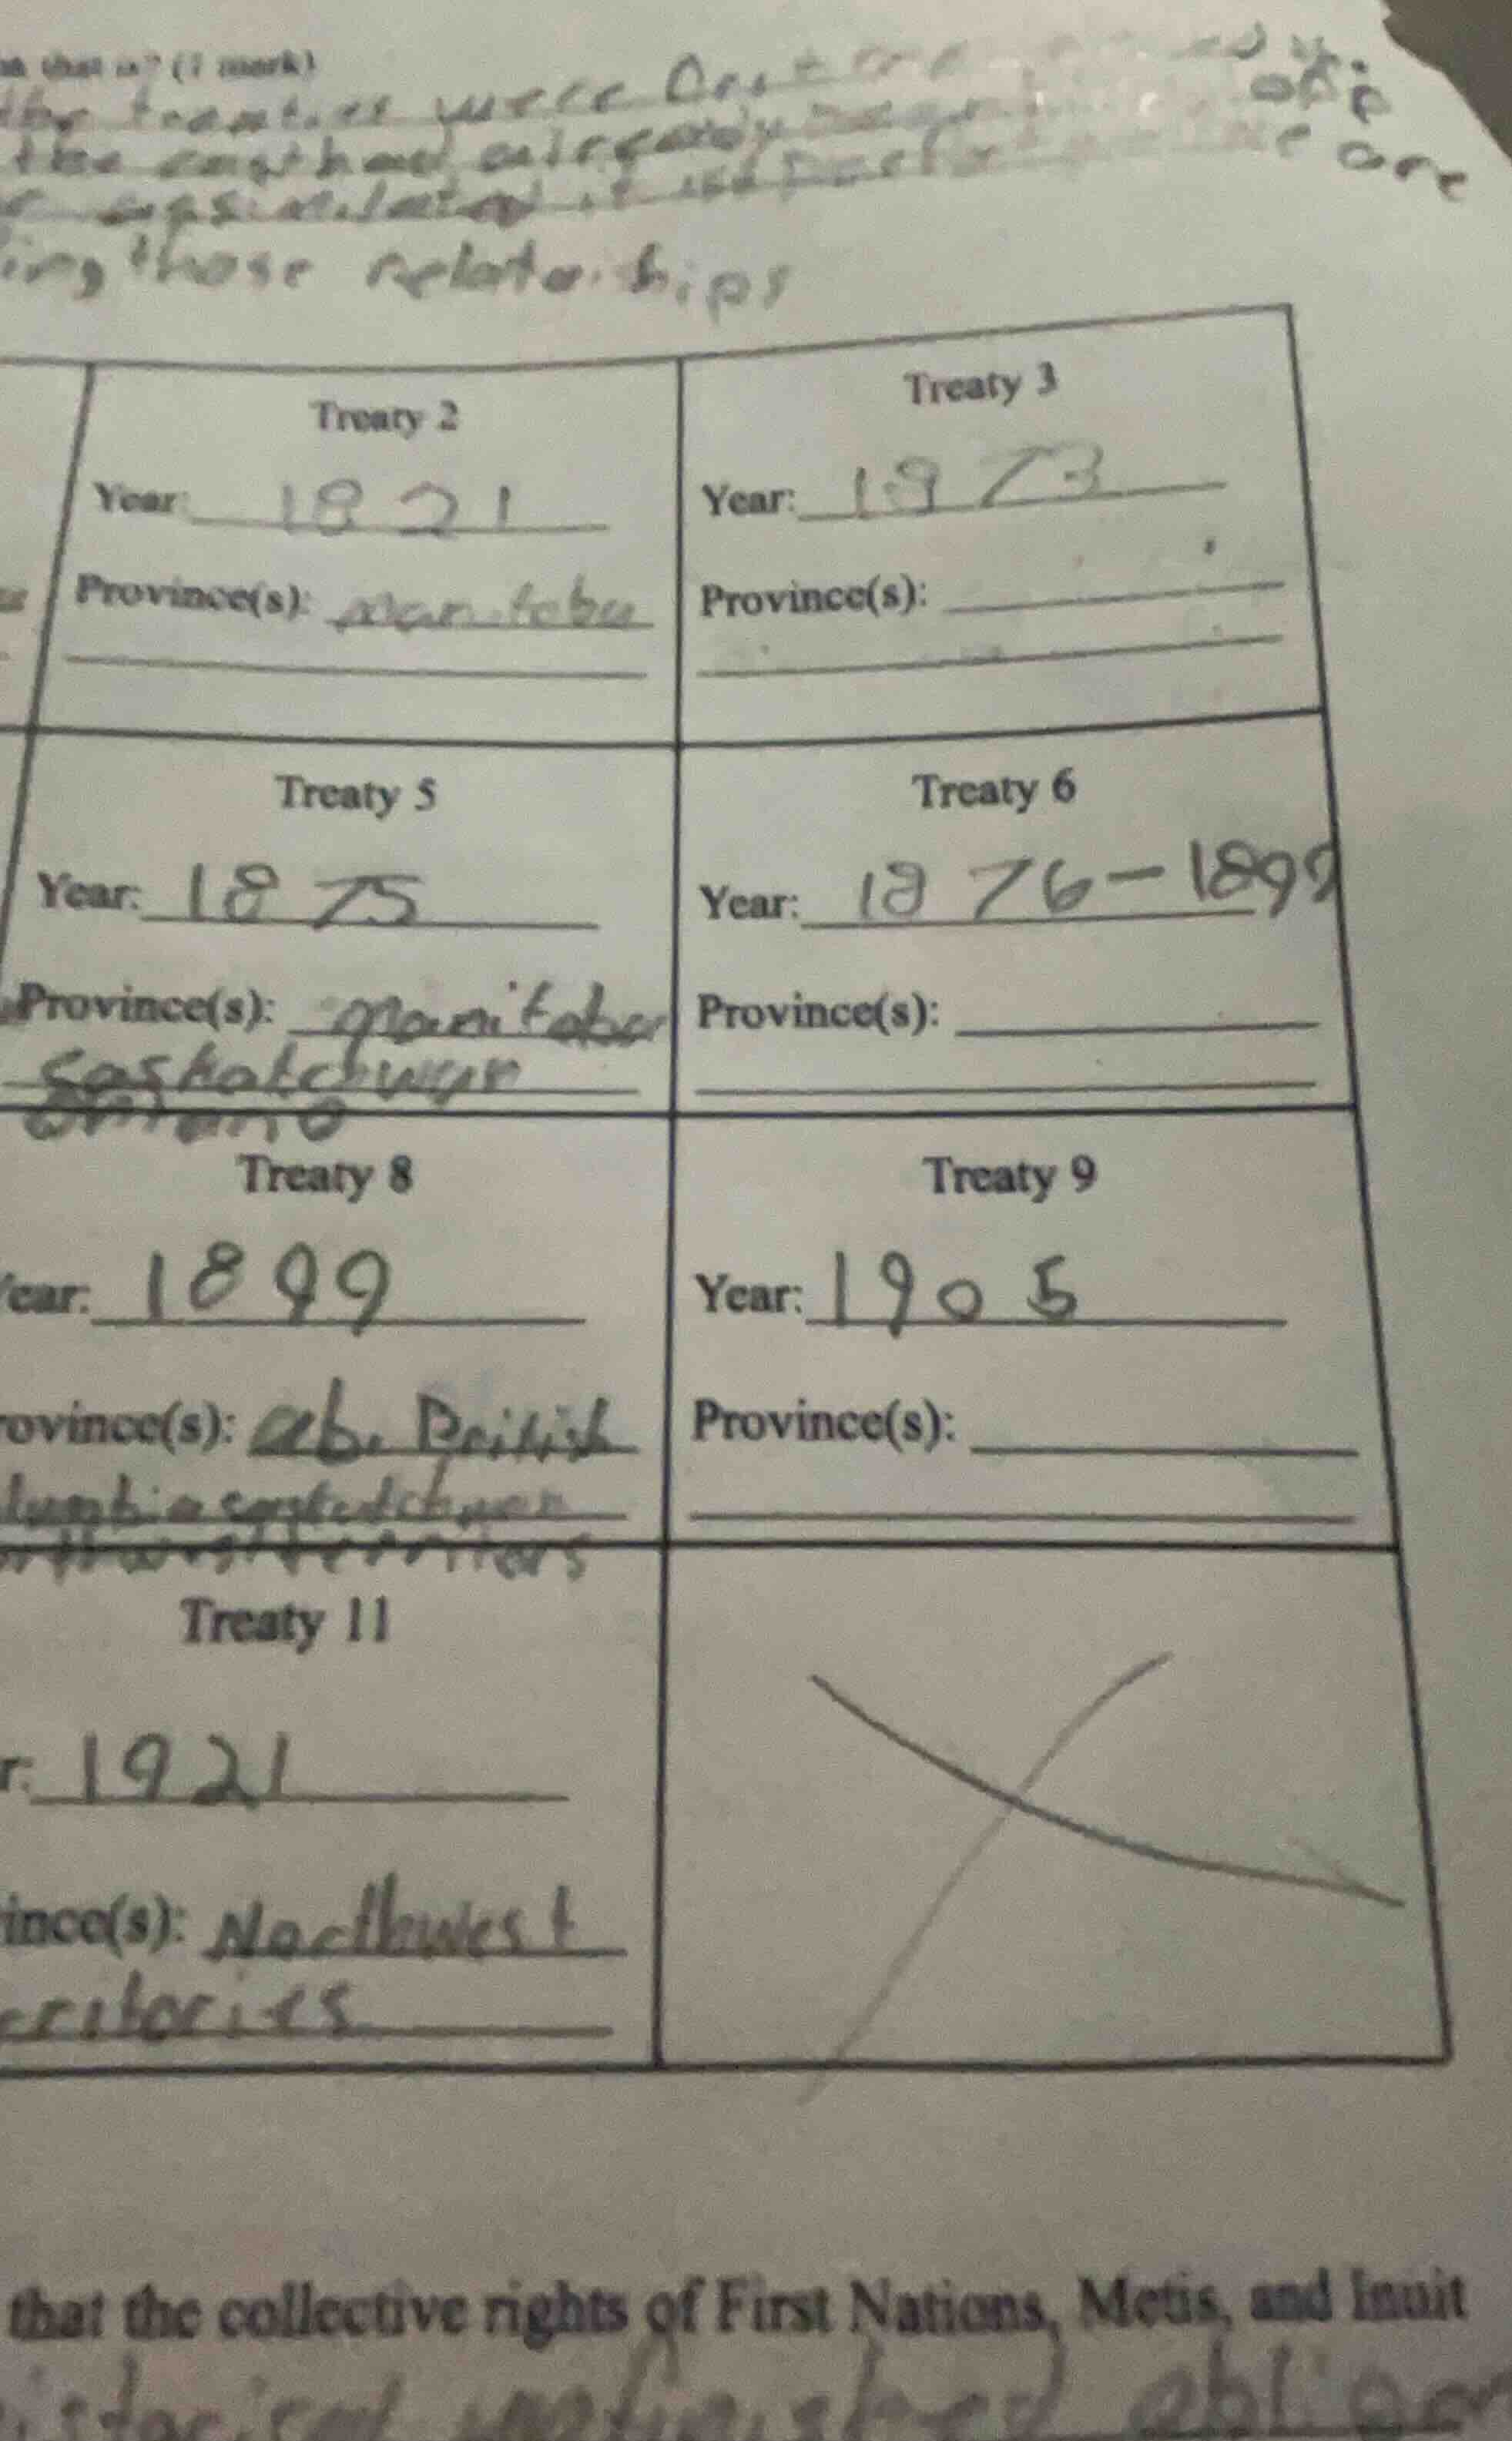 that is? (1 mark)
the treaties were
the east had already
assimilated it
ing those relatoiships
are
Treaty 2
Year: 1821
Province(s): manitoba
Treaty 3
Year: 1873
Province(s):
Treaty 5
Year: 1875
Province(s): manitoba
saskatchwan
ontario
Treaty 6
Year: 1876-1899
Province(s):
Treaty 8
ear: 1899
rovince(s): ab. British
lumbia saskatchwan
orthwest territors
Treaty 9
Year: 1905
Province(s):
Treaty 11
r: 1921
ince(s): Northwest
erritories
that the collective rights of First Nations, Metis, and Inuit
istorical